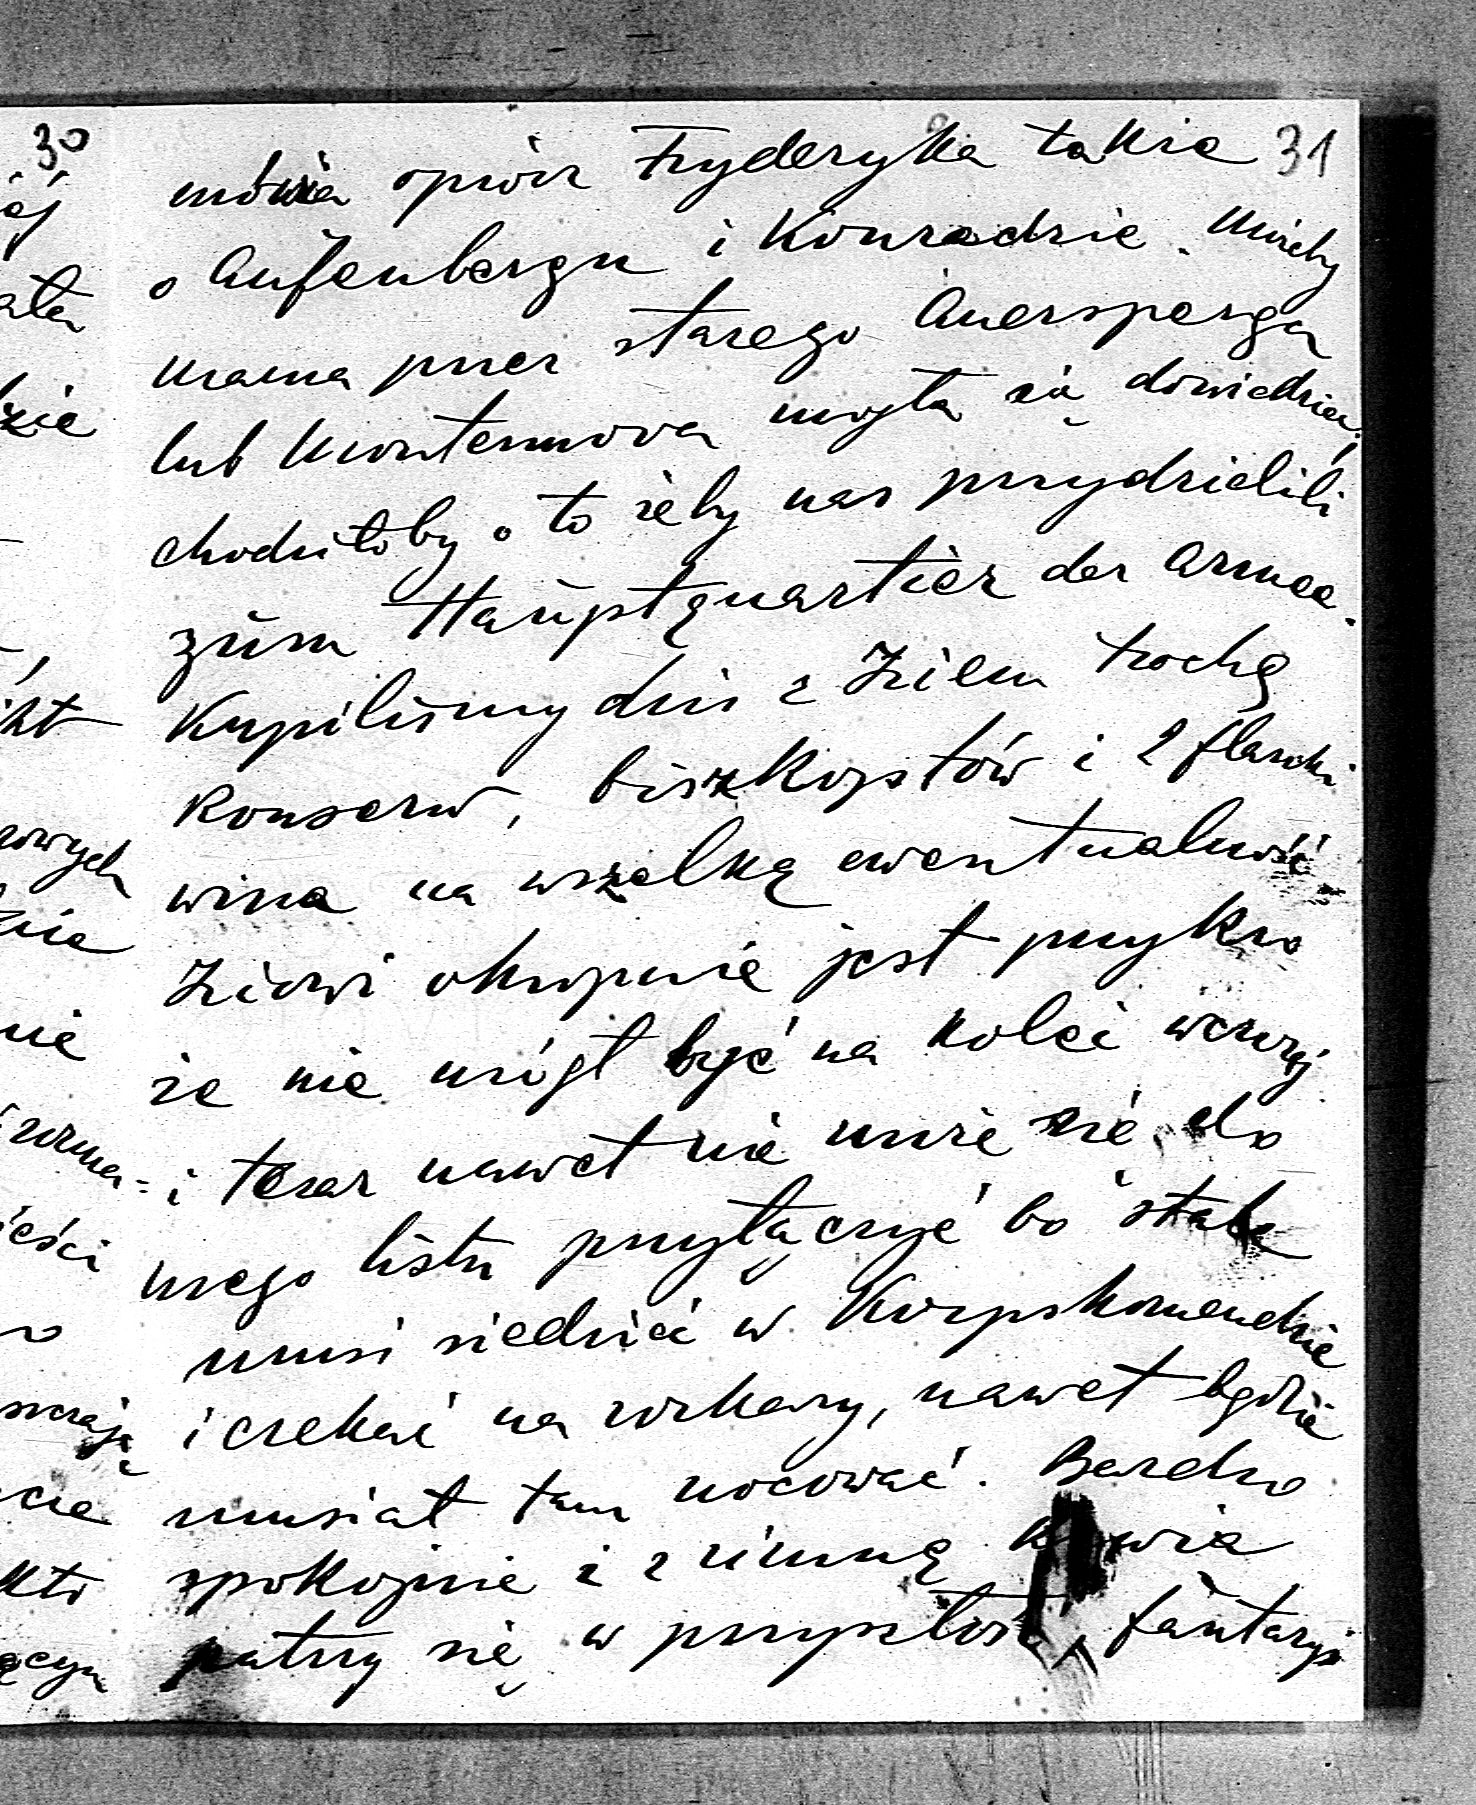 30
31
mówią oprócz Fryderyka także
o Aufenbergu i Konradzie. Możeby
mama przez starego Auersperga
lub Montenuova mogła się dowiedzieć,
chodziłoby o to żeby nas przydzielili
zum Hauptquartier der Armee.
Kupiliśmy dziś z Ziem trochę
konserw, biszkoptów i 2 flaszki
wina na wszelką ewentualność
Ziowi okropnie jest przykro
że nie mógł być na kolei wczoraj
i teraz nawet nie może się do
mego listu przyłączyć bo stale
musi siedzieć w Korpskomendzie
i czekać na rozkazy, nawet będzie
musiał tam nocować. Bardzo
spokojnie i z zimną krwią
patrzy się w przyszłość, fantazji